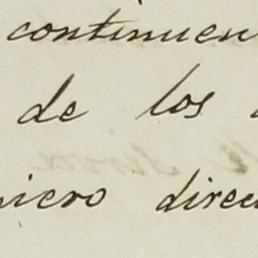 continuen
de los
niero direc